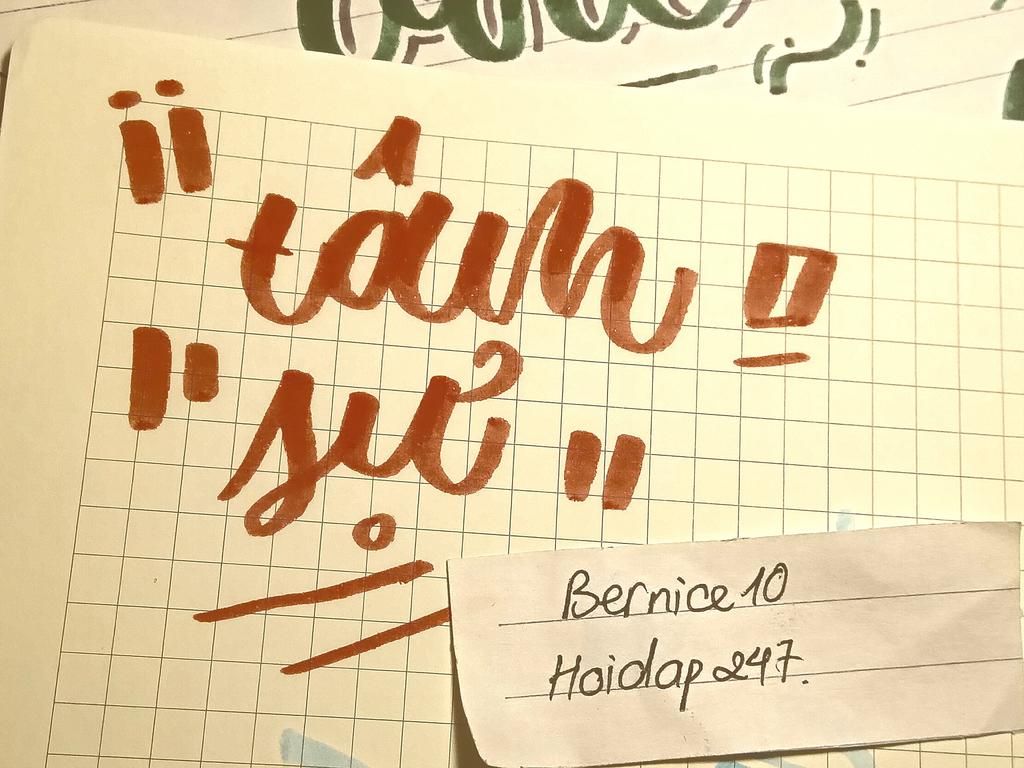 "tâm"
"sự"
Bernice 10
Hoidap 247.